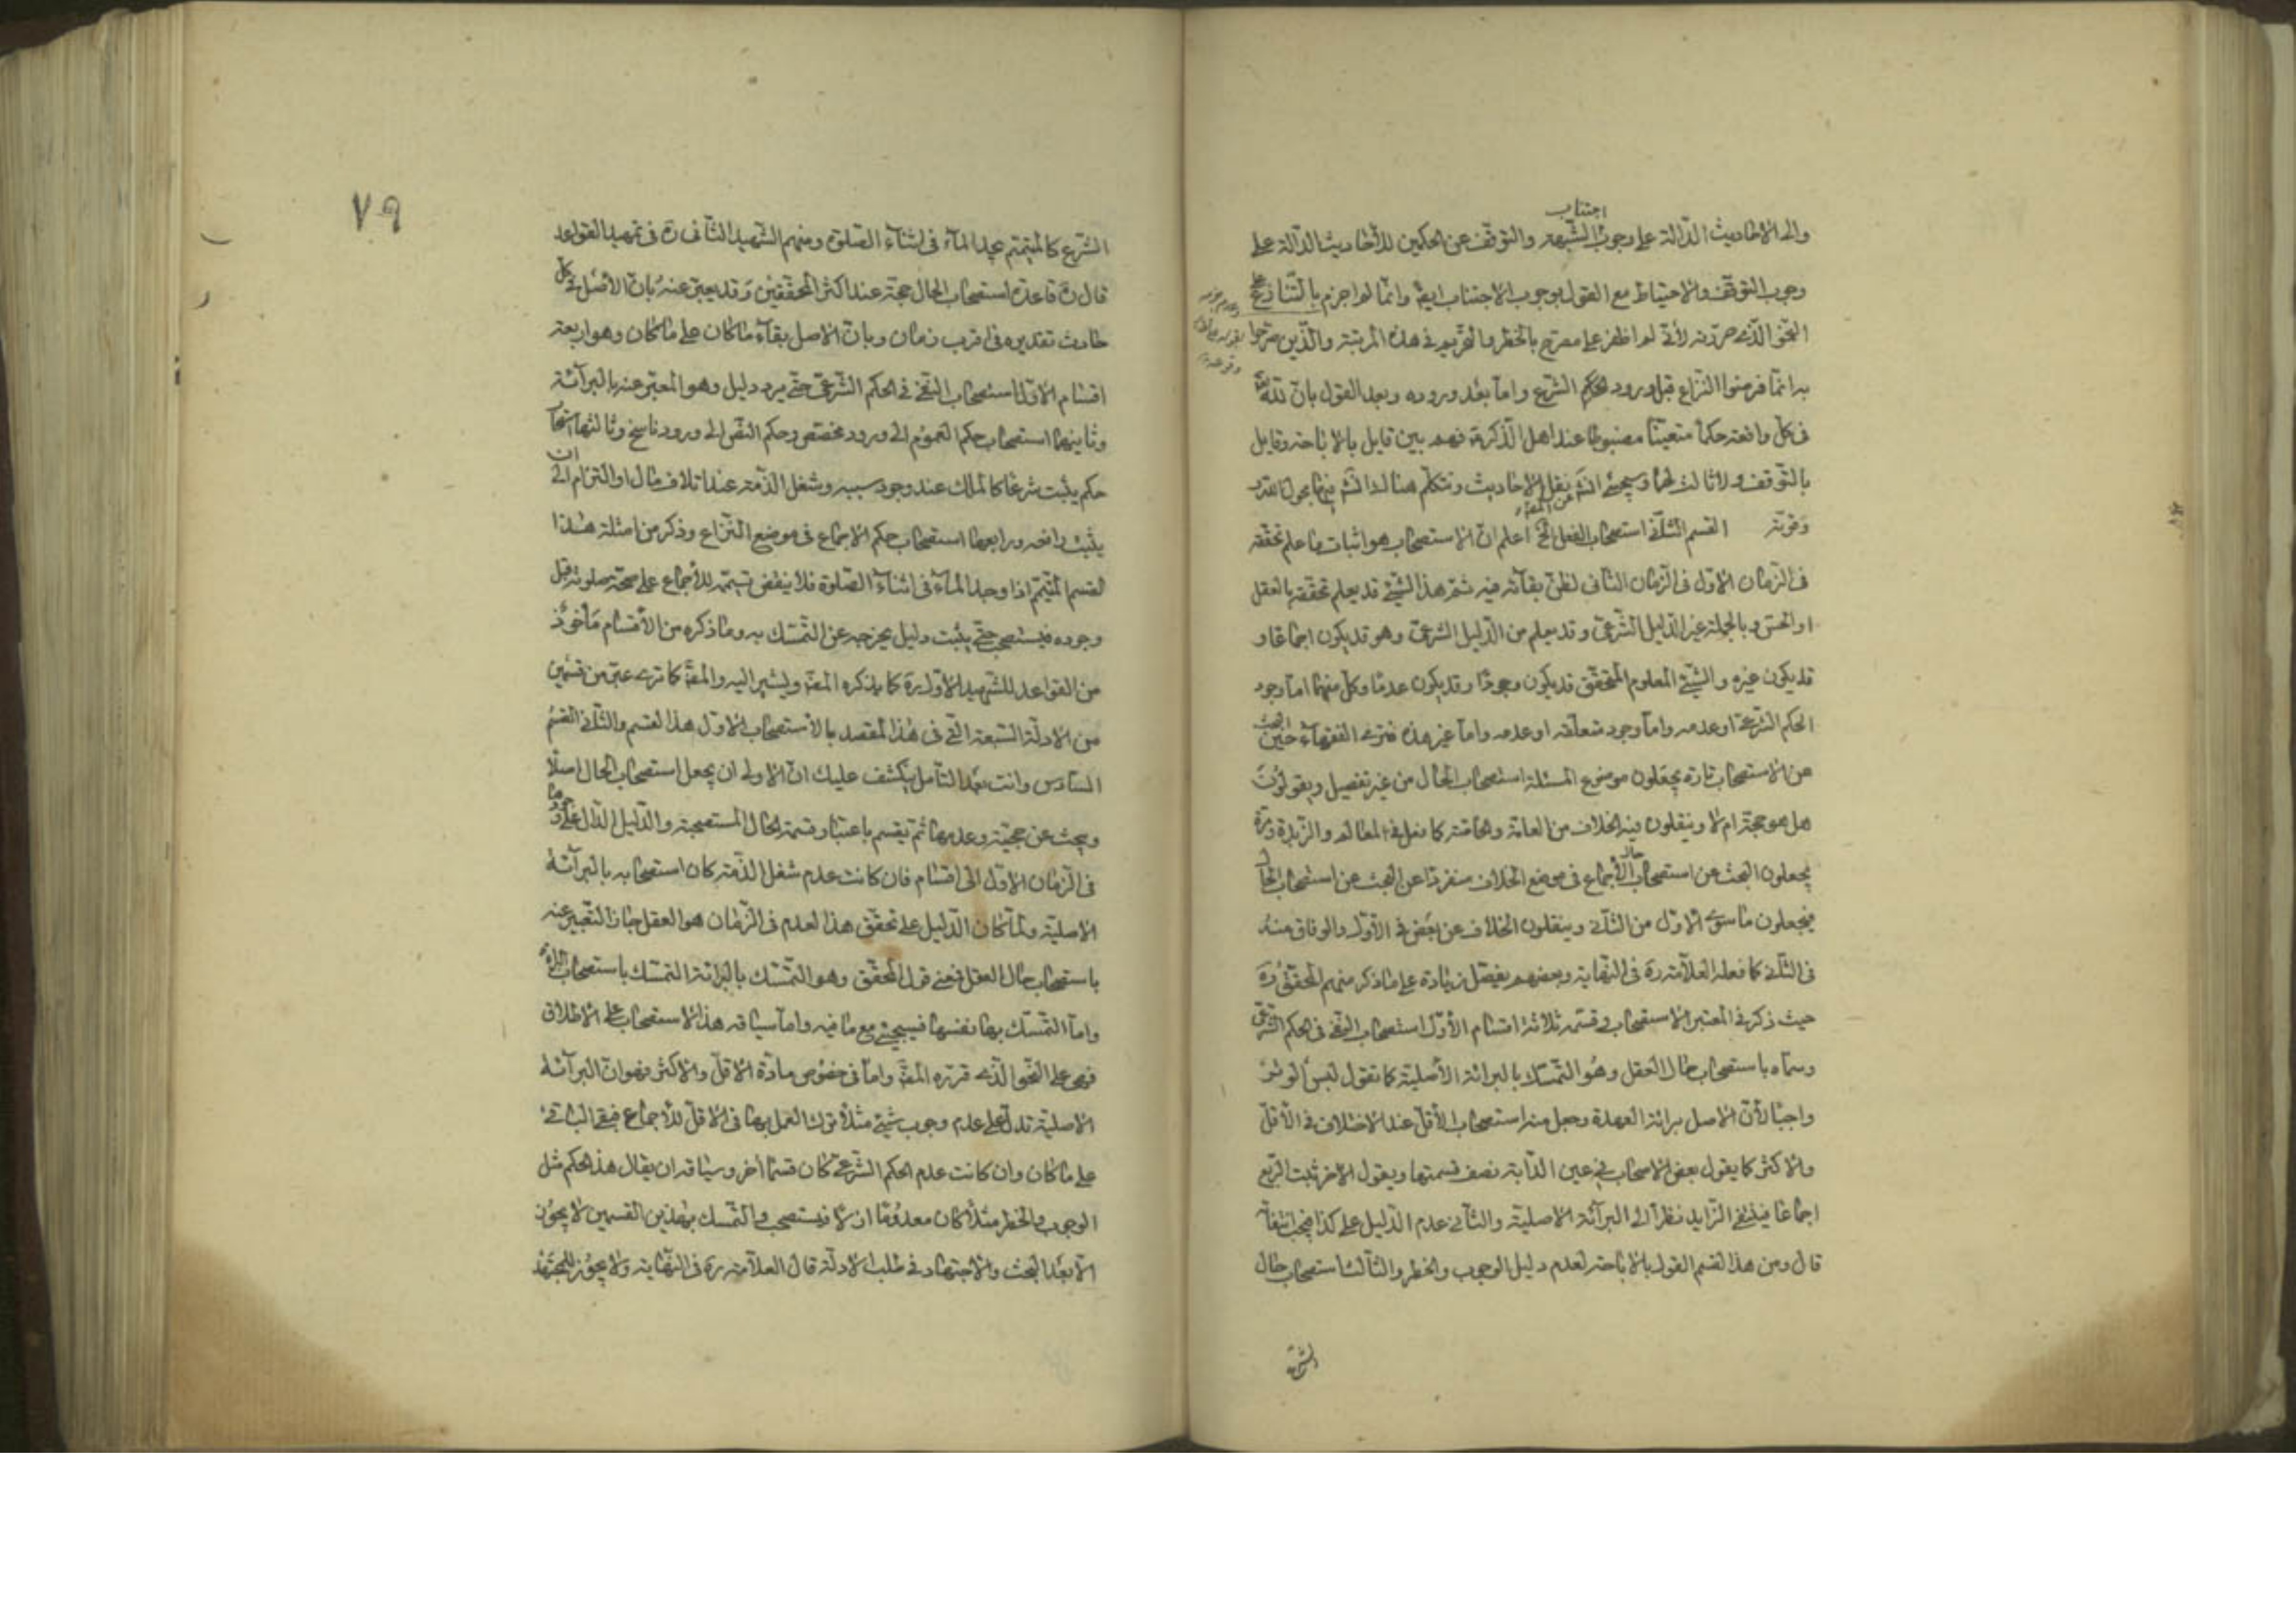 اجتناب
والى الاحاديث الدالة على وجوب الشبهة والتوقف عن الحكمين للأحاديث الدالة على
وجوب التوقف والاحتياط مع القول بوجوب الاجتناب ايضا وانما لم اجزم بالتنازع على
النحو الذي حررته لأني لم اظفر على مصرح بالحظر والتحريم في هذه المرتبة والذين صرحوا
به انما فرضوا النزاع قبل ورود الشرع واما بعد وروده وبعد القول بان لله
في كل واقعة حكما متعينا مضبوطا عند اهل الذكر فهم بين قايل بالاباحة وقايل
بالتوقف ولا ثالث لهما وسيجئ انش نقل الاحاديث ونتكلم هنالك انش فيها بحول الله
وقوته القسم الثاني استصحاب الفعل الخ اعلم ان الاستصحاب هو اثبات ما علم تحققه
في الزمان الاول في الزمان الثاني لظن بقائه فيه ثم هذا الشئ قد يعلم تحققه بالعقل
او الحس وبالجملة غير الدليل الشرعي وقد يعلم من الدليل الشرعي وهو قد يكون اجماعا و
قد يكون غيره والشئ المعلوم المتحقق قد يكون وجودا وقد يكون عدما وكل منهما اما وجود
الحكم الشرعي او عدمه واما وجود متعلقه او عدمه واما غير هذه فترى الفقهاء حين البحث
عن الاستصحاب تارة يجعلون موضوع المسئلة استصحاب الحال من غير تفصيل ويقولون
هل هو حجة ام لا وينقلون فيه الخلاف من العامة والخاصة كما فعل في المعالم والزبدة وتارة
يجعلون البحث عن استصحاب حال الاجماع في موضع الخلاف منفردا عن البحث عن استصحاب الحال
فيجعلون ما سوى الاول من الثاني وينقلون الخلاف عن بعض في الأول والوفاق منه
في الثاني كما فعله العلامة ره في النهاية وبعضهم يفصل زيادة على ما ذكر منهم المحقق ره
حيث ذكر في المعتبر الاستصحاب وقسمه ثلاثة اقسام الأول استصحاب النفي في الحكم الشرعي
وسماه باستصحاب حال العقل وهو التمسك بالبرائة الأصلية كما نقول ليس الوتر
واجبا لأن الاصل برائة العهدة وجعل منه استصحاب الأقل عند الاختلاف في الأقل
والاكثر كما يقول بعض الاصحاب في عين الدابة نصف قيمتها ويقول الاخر ثبت الربع
اجماعا فينتفي الزايد نظرا الى البرائة الاصلية والثاني عدم الدليل على كذا فيجب انتفائه
قال ومن هذا القسم القول بالاباحة لعدم دليل الوجوب والحظر والثالث استصحاب حال
الشرع
٧٩
الشرع كالمتيمم يجد الماء في اثناء الصلوة ومنهم الشهيد الثاني ره في تمهيد القواعد
قال ره قاعدة استصحاب الحال حجة عند اكثر المحققين وقد يعبر عنه بان الأصل في كل
حادث تقديره في اقرب زمان وبان الاصل بقاء ما كان على ما كان وهو اربعة
اقسام الاول استصحاب النفي في الحكم الشرعي حتى يرد دليل وهو المعبر عنه بالبرائة
وثانيها استصحاب حكم العموم الى ورود مخصص وحكم النص الى ورود ناسخ وثالثها استصحاب
حكم يثبت شرعا كالملك عند وجود سببه وشغل الذمة عند اتلاف مال او التزام الى ان
يثبت رافعه ورابعها استصحاب حكم الاجماع في موضع النزاع وذكر من امثلة هذا
القسم المتيمم اذا وجد الماء في اثناء الصلوة فلا ينقض تيممه للأجماع على صحة صلوته قبل
وجوده فيستصحب حتى يثبت دليل يخرجه عن التمسك به وما ذكره من الأقسام مأخوذ
من القواعد للشهيد الاول ره كما يذكره المص ويشير اليه والمص كما ترى عبر من قسمين
من الادلة التسعة التي في هذا المقصد بالاستصحاب الاول هذا القسم والثاني القسم
السادس وانت بعد التأمل ينكشف عليك ان الاولى ان يجعل استصحاب الحال اصلا
ويبحث عن حجيته وعدمها ثم يقسم باعتبار قسمة الحال المستصحبة والدليل الدال على وجودها
في الزمان الاول الى اقسام فان كانت عدم شغل الذمة كان استصحابه بالبرائة
الاصلية ولما كان الدليل على تحقق هذا العدم في الزمان هو العقل جاز التعبير عنه
باستصحاب حال العقل فمعنى قول المحقق وهو التمسك بالبرائة التمسك باستصحاب البراءة
واما التمسك بها نفسها فسيجئ مع ما فيه واما سياقه هذا الاستصحاب على الاطلاق
فهي على النحو الذي قرره المص واما في خصوص مادة الاقل والاكثر فهو ان البرائة
الاصلية تدل على عدم وجوب شئ مثلا ترك العمل بها في الاقل للأجماع فبقي الباقي
على ما كان وان كانت عدم الحكم الشرعي كان قسما آخر وسياقه ان يقال هذا الحكم مثل
الوجوب والحظر مثلا كان معدوما ازلا فيستصحب والتمسك بهذين القسمين لا يجوز
الا بعد البحث والاجتهاد في طلب الادلة قال العلامة ره في النهاية ولا يجوز للمجتهد